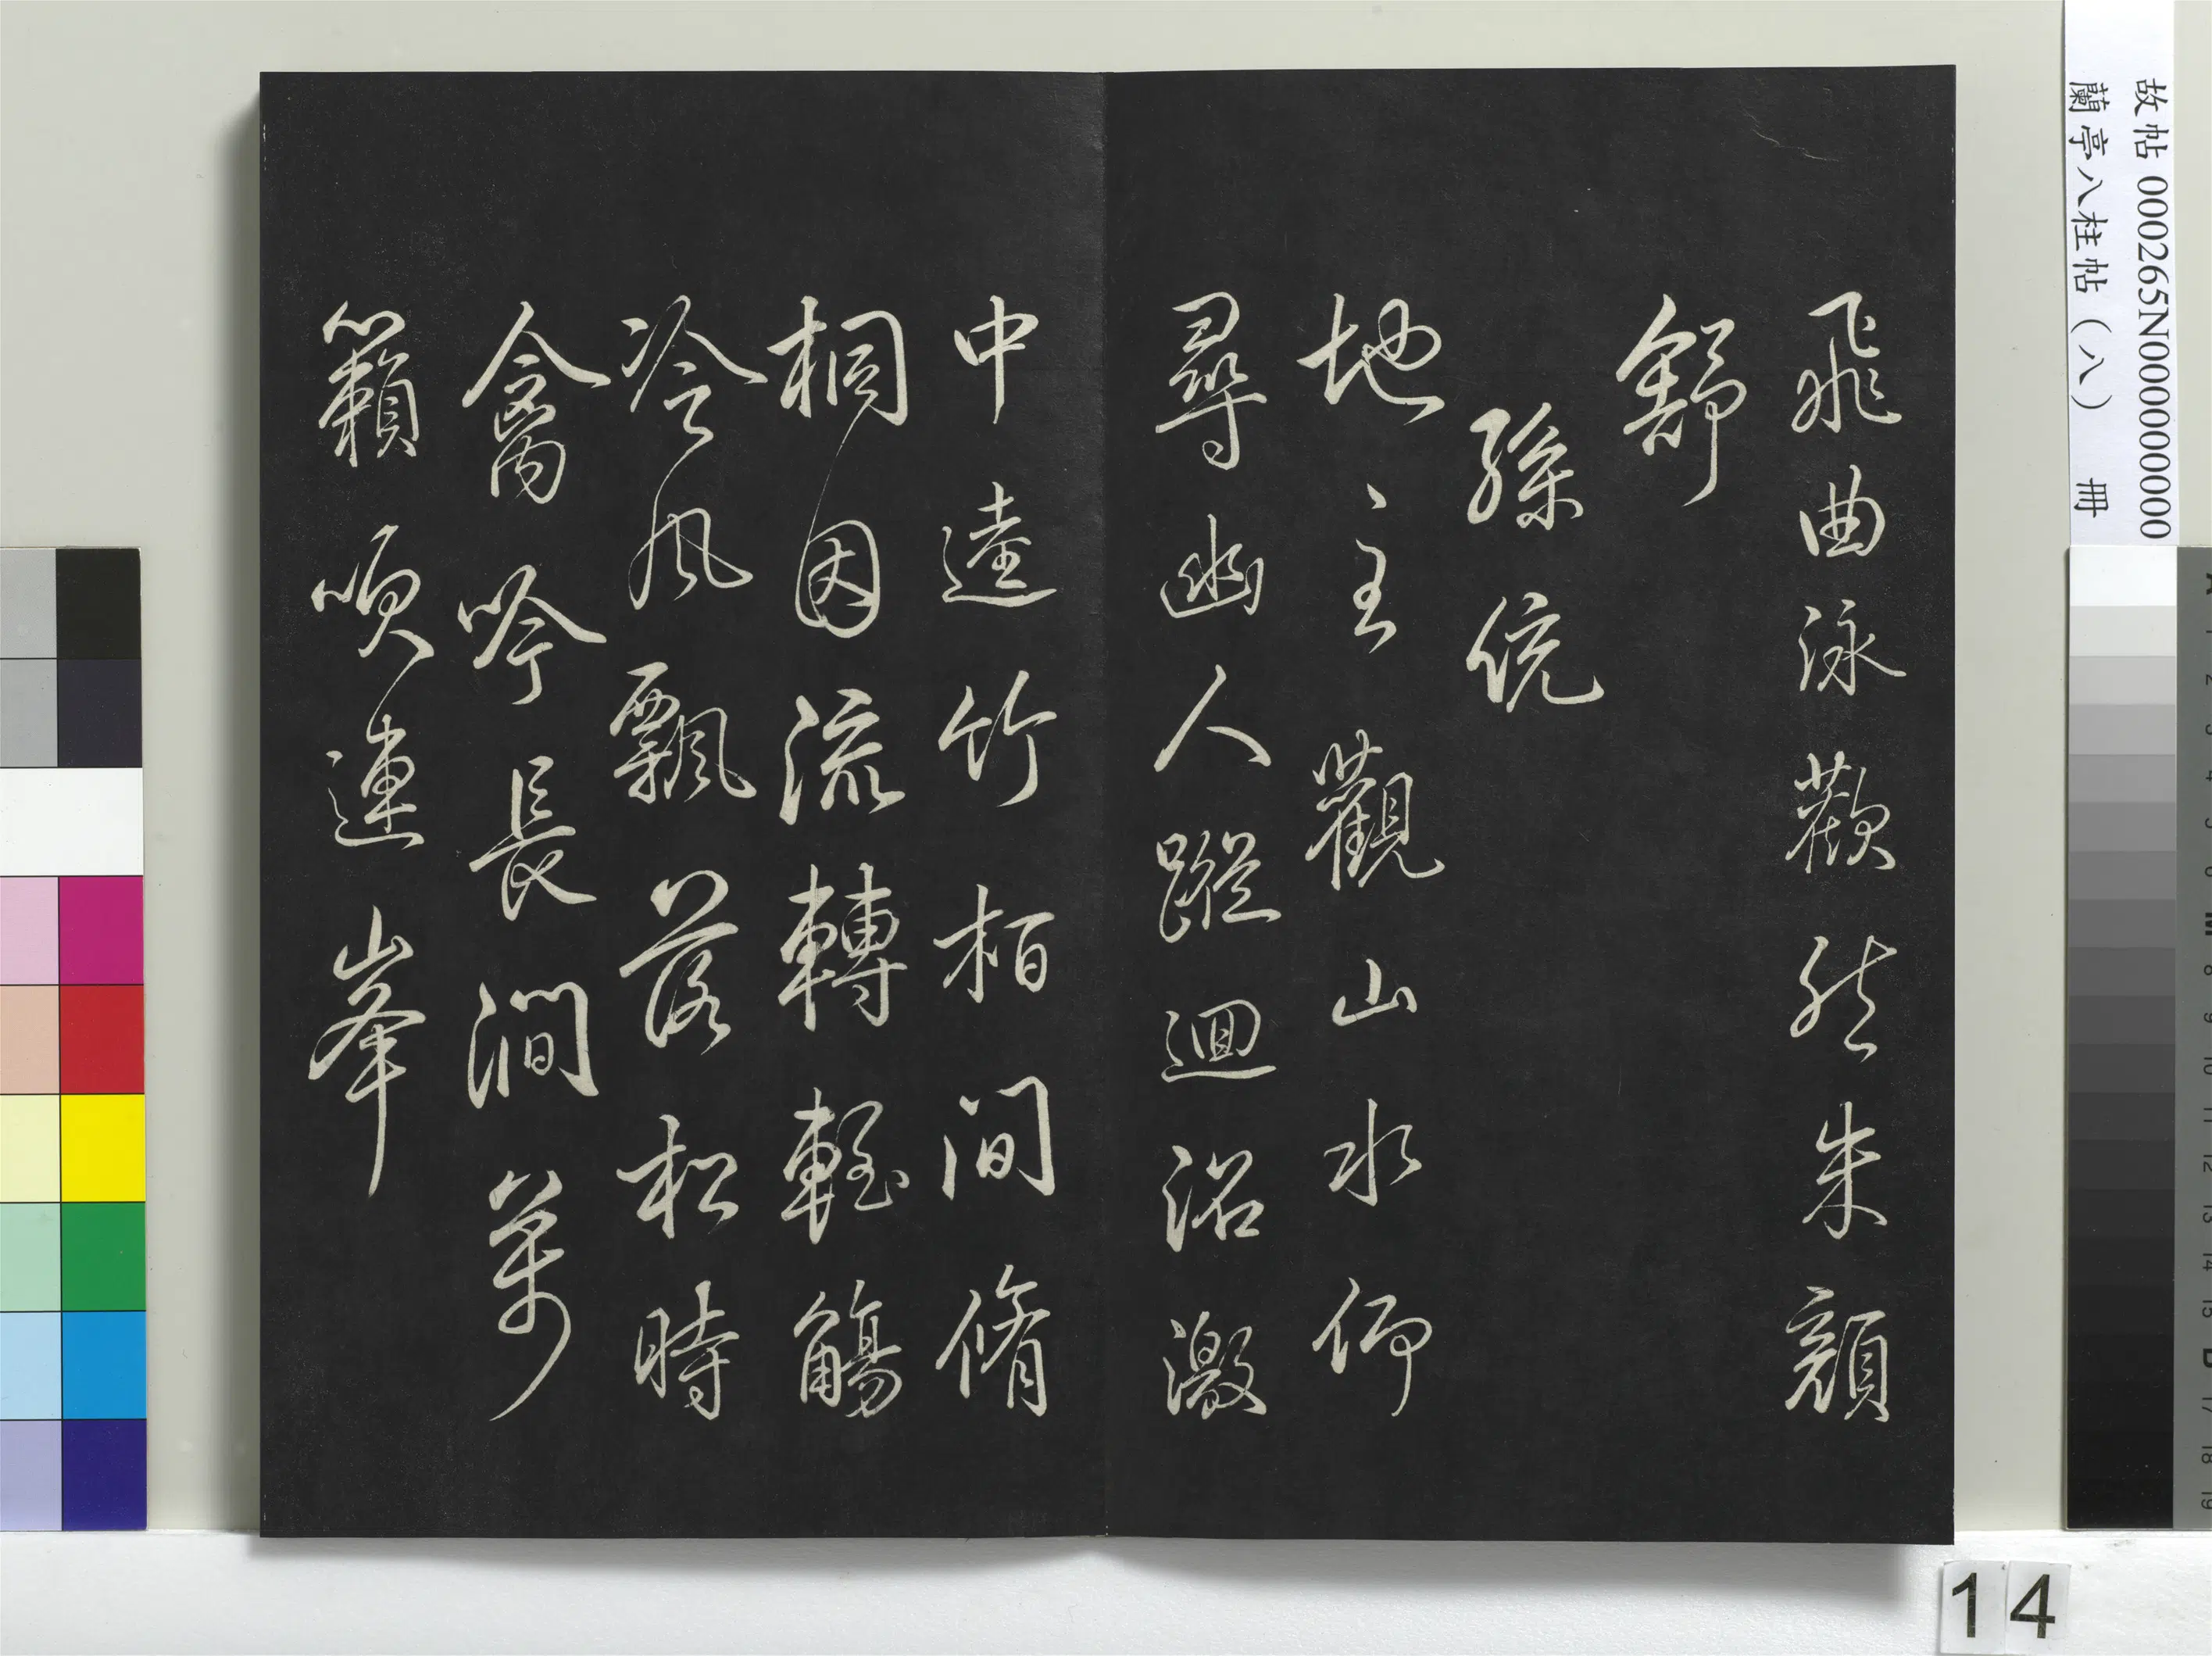 飛曲泳歡然朱顏
舒
孫統
地主觀山水仰
尋幽人蹤迴沼激
中逵竹柏間脩
桐因流轉輕觴
冷風飄落松時
禽吟長澗萬
籟吹連峯
故帖 000265N000000000
蘭亭八柱帖（八） 冊
14